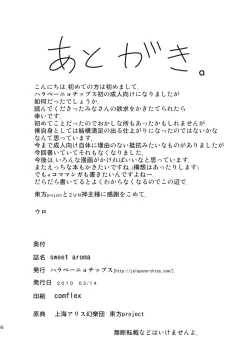 あとがき。
こんにちは、初めての方は初めまして。
ハラペーニョチップス初の成人向けになりましたが
如何だったでしょうか。
読んでくださったみなさんの欲求をかきたてられたら
幸いです。
初めてことだったのでおかしな所もあったかもしれませんが
僕自身としては結構満足の出る仕上がりになったのではないかな
なんて思っています。
今まで成人向け自体に理由のない抵抗みたいなものがありましたが
今回書いていてそれもなくなりました。
今後は、いろんな漫画がかければいいなと思っています。
またえっちな本もかきたいですね。(構想があったりします)
でも4コママンガも書きたいんですよねー。
だらだら書いてるとよくわからなくなるのでこの辺で。
東方projectとZUN神主様に感謝をこめて。
ウロ
奥付
誌名 sweet aroma
発行 ハラペーニョチップス[http://jalapyon-chips.com/]
発行日 2010 03/14
印刷 comflex
原典 上海アリス幻樂団 東方project
無断転載などはいけませんよ。